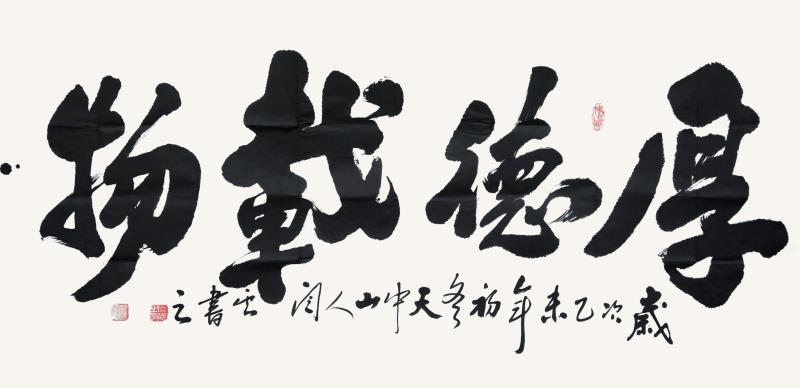 厚德載物
歲次乙未年初冬天中山人闫雲書之